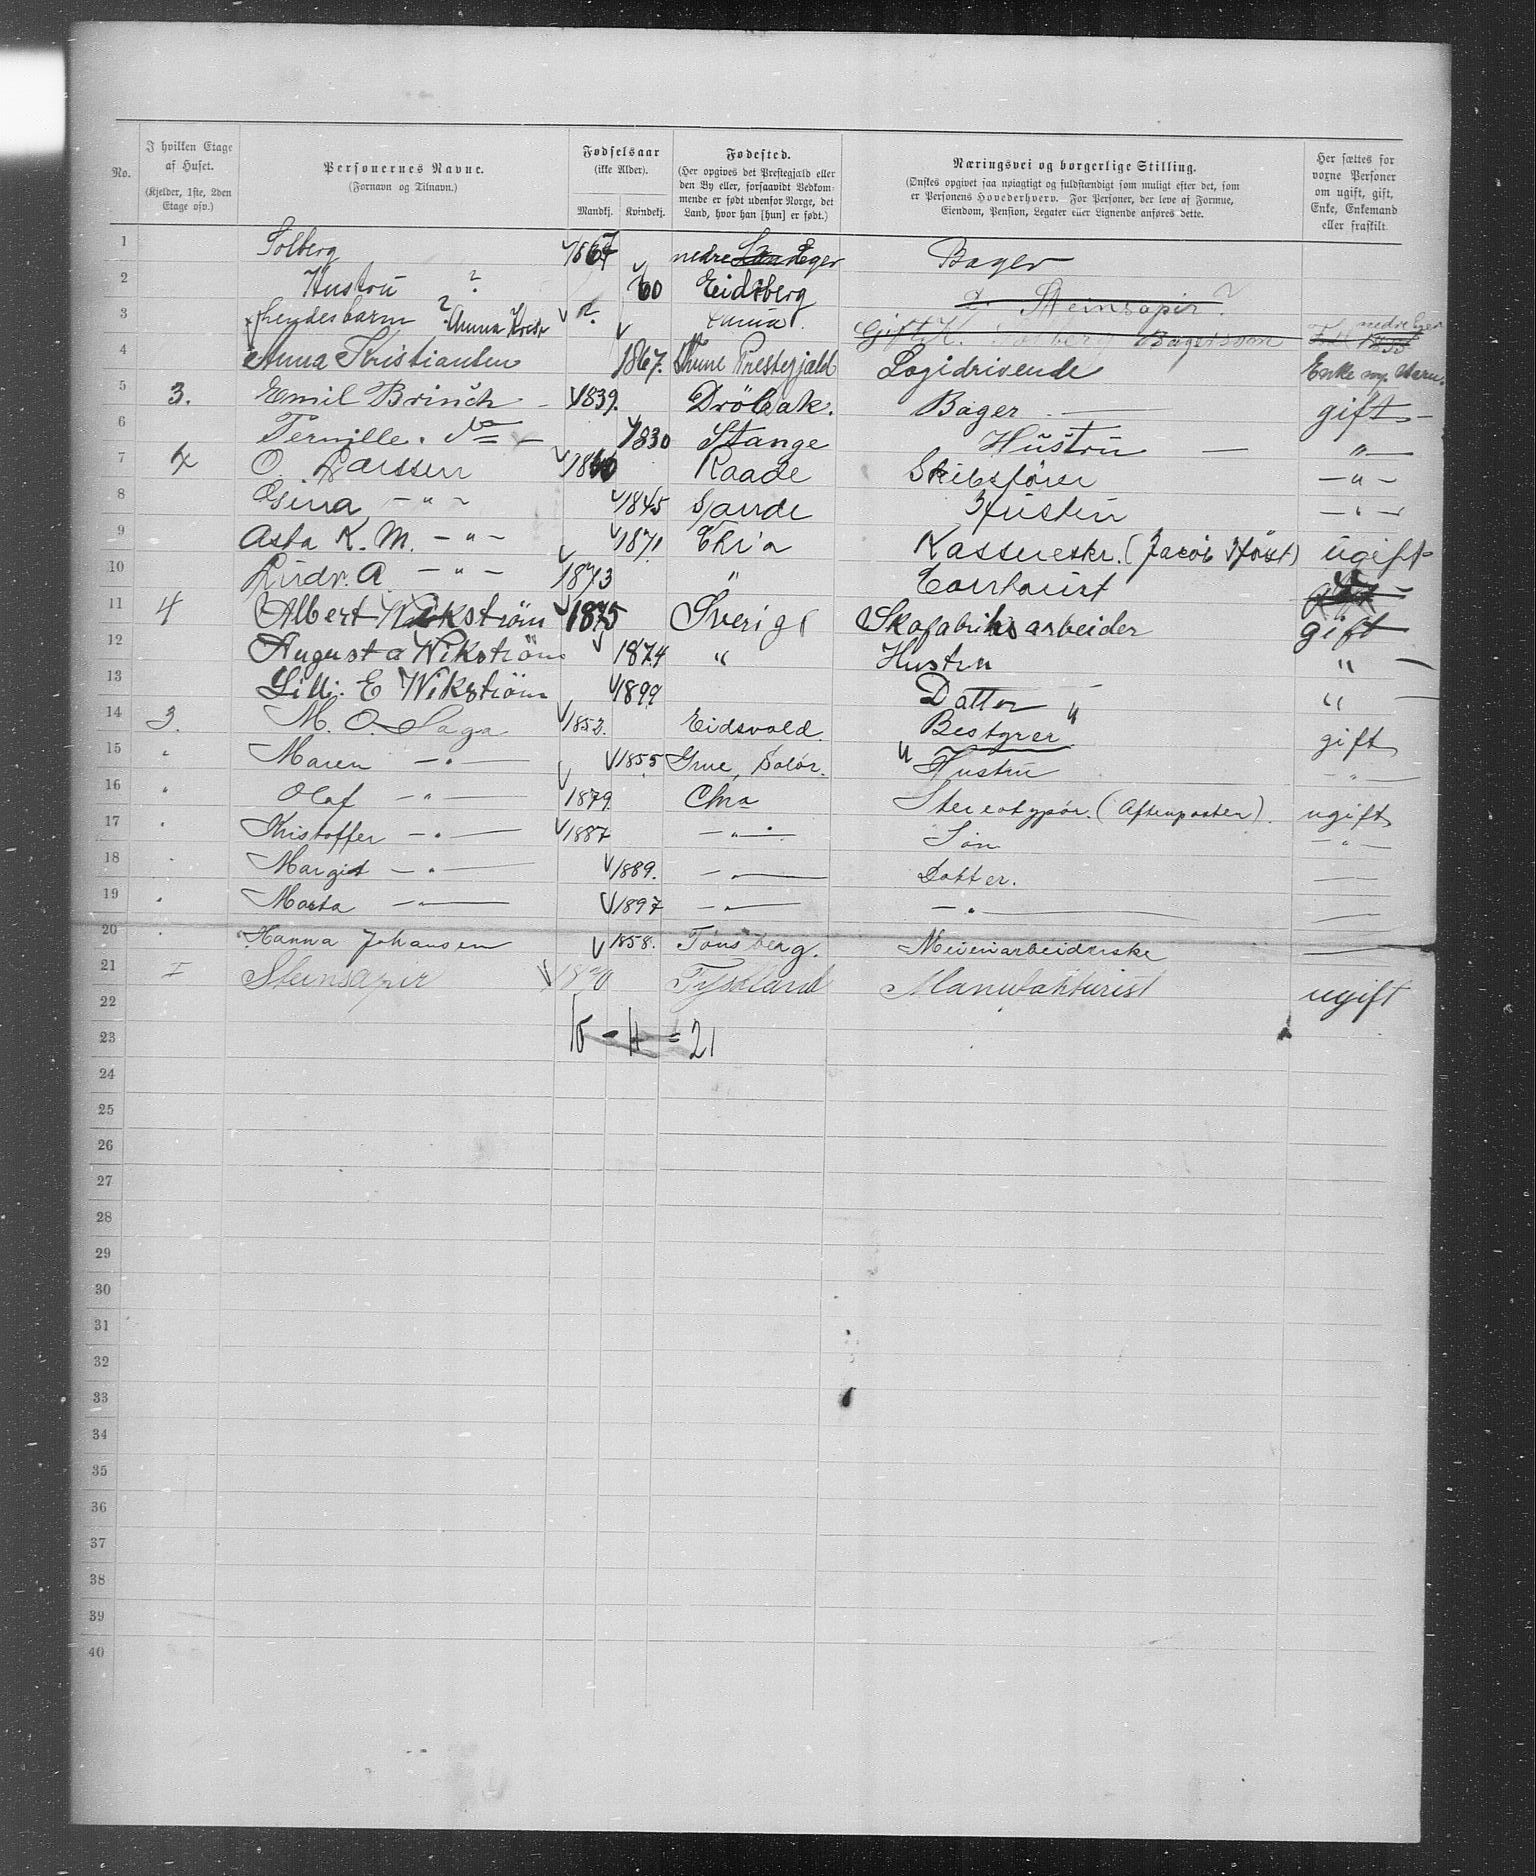 No.
I hvilken Etage af Huset.
(Kjelder, 1ste, 2den Etage osv.)
Personernes Navne.
(Fornavn og Tilnavn.)
Fødselsaar
(ikke Alder).
Mandkj. Kvindekj.
Fødested.
(Her opgives det Prestegjald eller den By eller, forsaavidt Vedkommende er født udenfor Norge, det Land, hvor han [hun] er født.)
Næringsvei og borgerlige Stilling.
(Ønskes opgivet saa nøiagtigt og fuldstændigt som muligt efter det, som er Personens Hovederhverv. For Personer, der leve af Formue, Eiendom, Pension, Legater eller Lignende anføres dette.
Her sættes for voxne Personer om ugift, gift, Enke, Enkemand eller fraskilt.
1 Solberg 1867 nedre Eger Bager
2 Hustru ? 60 Eidsberg Steinsapir ?
3 hendes barn ? Anna ? Gift K. Solberg Bagersvend nedre Eger
4 Anna Kristiansen 1867. Thune Prestegjald Logidrivende Enke
5 3. Emil Brinch 1839. Dröbak. Bager gift
6 Pernille. 1830 Stange Hustru "
7 O. Larssen 1840 Raade Skibsfører — " —
8 Gina — " — 1845 Hustru — " —
9 Asta K. M. — " — 1871 Chria (Jacob Høst) ugift
10 Ludv. A — " — 1873 " Contorist
11 4 Albert Wikström 1875 Sverige Skofabrik arbeider gift
12 Augusta Wikström 1874 " Hustru "
13 Lilli. E Wikström 1899 Datter " "
14 3. M. O. Saga 1852. Eidsvold. Bestyrer gift
15 " Maren — " — 1855 Grue, Solør. Hustru — " —
16 " Olaf — " — 1879 Chra Stereotypør. (Aftenposten). ugift
17 " Kristoffer — " — 1887 — " — Søn — " —
18 " Margit — " — 1889. — " — Datter. —
19 " Marta — " — 1897 — " — — " — —
20 " Hanna Johansen 1858. Tønsberg. Meieriarbeiderske —
21 I Steinsapir 1870 Tyskland Manufakturist ugift
22
23 10 - 11 = 21
24
25
26
27
28
29
30
31
32
33
34
35
36
37
38
39
40